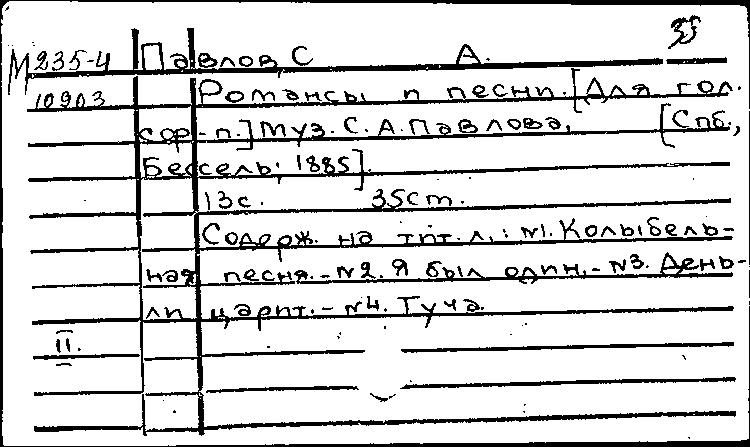 35
М 235-4 Павлов, С А.
10903 Романсы и песни. [Для гол.
сор-п.] Муз. С. А. Павлова, [Спб.,
Бессель, 1885].
13с. 35см.
Содерж. на тит. л.: №1. Колыбель-
ная песня.-№2. Я был один.-№3. День-
ли царит.-№4. Туча.
II.